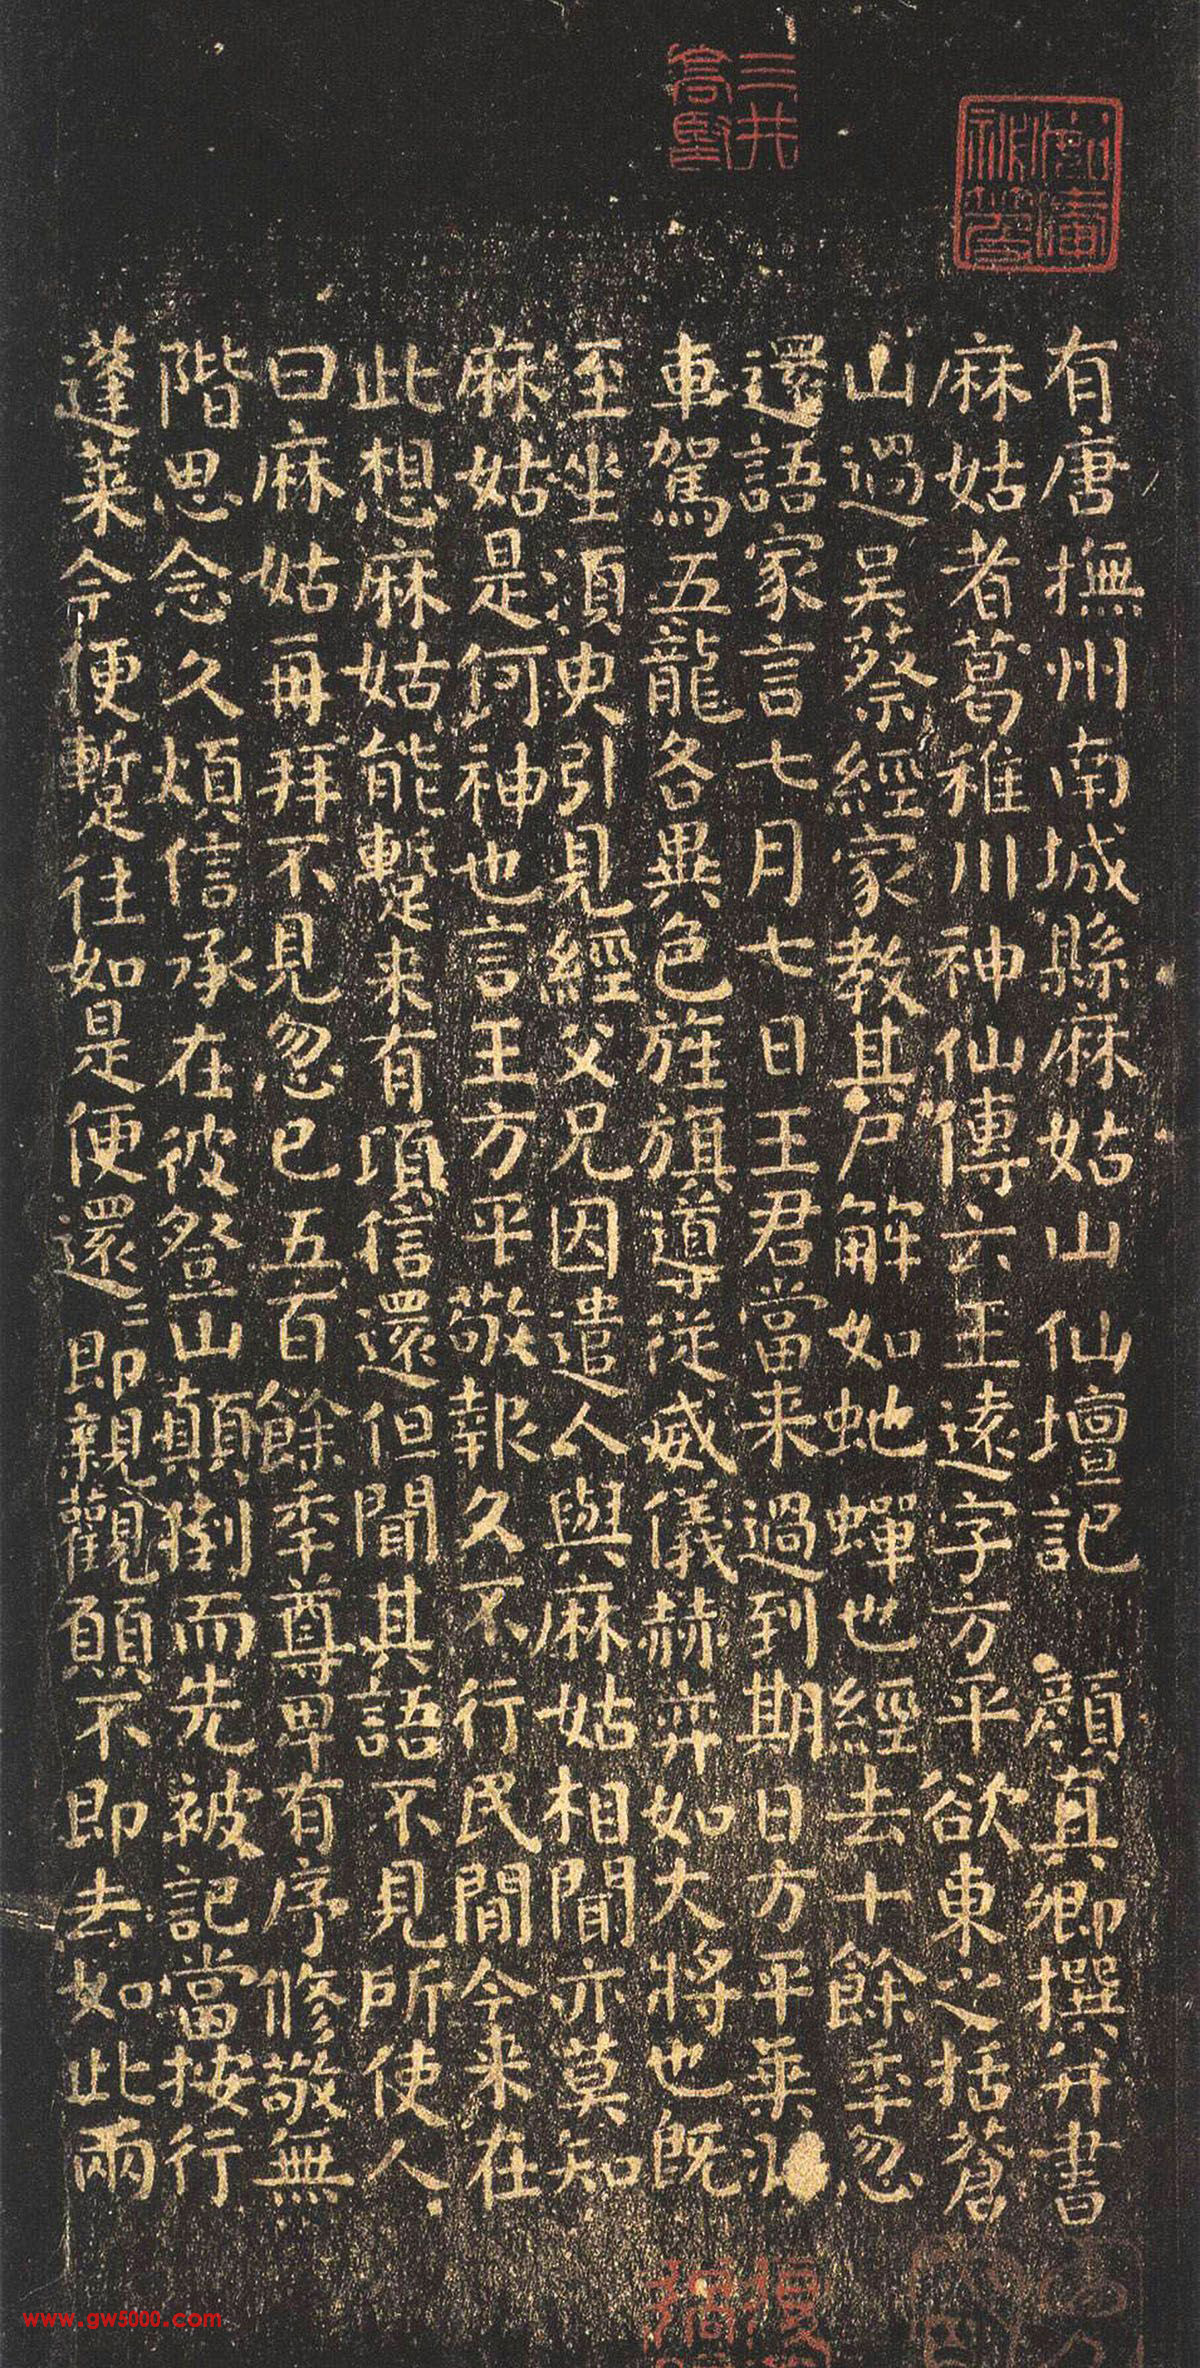 有唐撫州南城縣麻姑山仙壇記 顏真卿撰并書
麻姑者葛稚川神仙傳云王遠字方平欲東之括蒼
山過吳蔡經家教其尸解如虵蟬也經去十餘季忽
還語家言七月七日王君當来過到期日方平乗
車駕五龍各異色旌旗導従威儀赫弈如大將也既
至坐須臾引見經父兄因遣人與麻姑相聞亦莫知
麻姑是何神也言王方平敬報久不行民間今来在
此想麻姑能暫来有頃信還但聞其語不見所使人
曰麻姑再拜不見忽已五百餘季尊卑有序修敬無
階思念久煩信承在彼登山顛倒而先被記當按行
蓬萊今便暫往如是便還還即親觀願不即去如此兩
三井
高堅
www.gw5000.com